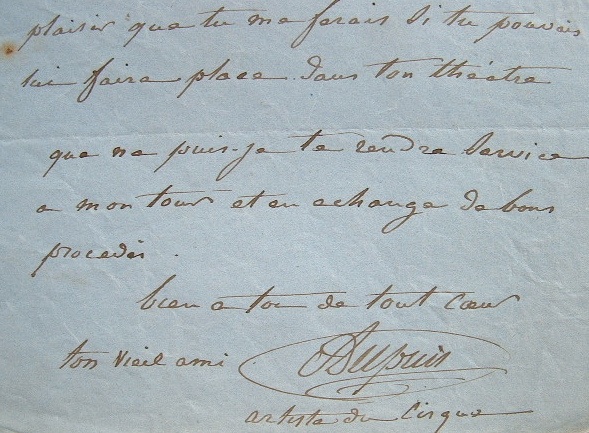 plaisir que tu me ferais si tu pouvais
lui faire place dans ton théatre
que ne puis-je te rendre service
a mon tour et en echange de bons
procedés.
bien a toi de tout cœur
ton vieil ami Dupuis
artiste du Cirque